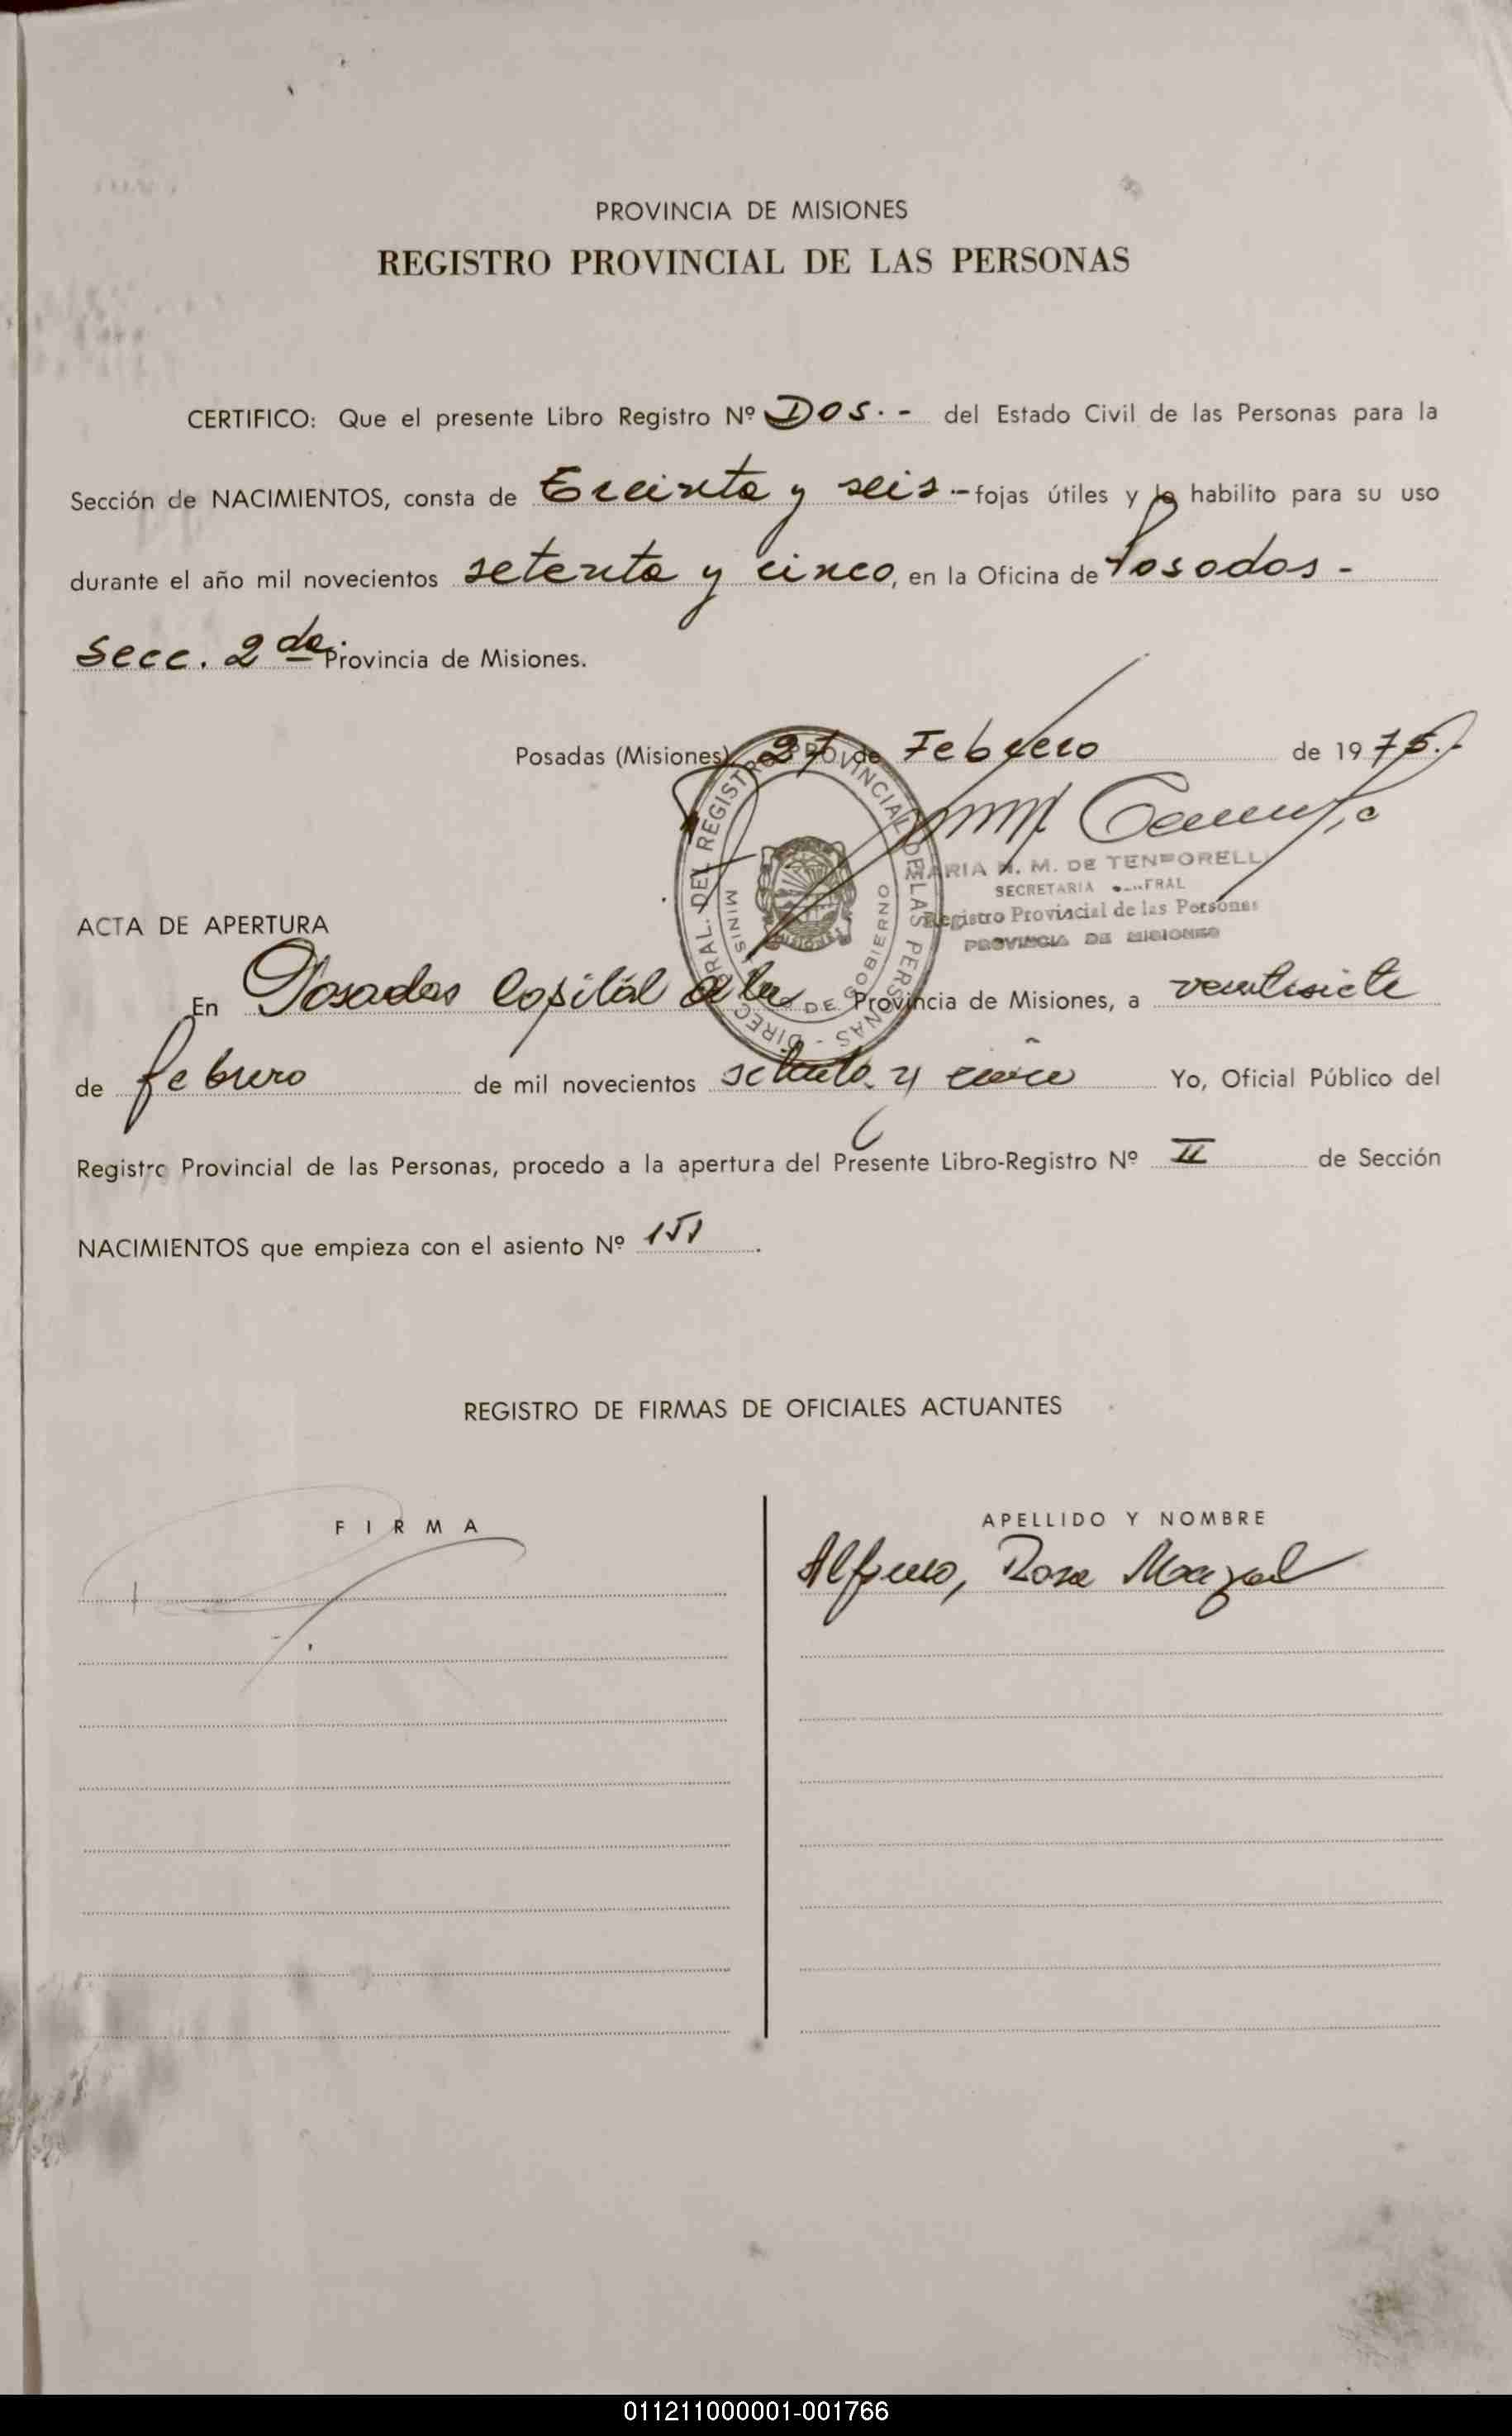 PROVINCIA DE MISIONES
REGISTRO PROVINCIAL DE LAS PERSONAS
CERTIFICO: Que el presente Libro Registro Nº Dos.- del Estado Civil de las Personas para la
Sección de NACIMIENTOS, consta de Treinta y seis.- fojas útiles y lo habilito para su uso
durante el año mil novecientos setenta y cinco, en la Oficina de Posadas -
Secc. 2da. Provincia de Misiones.
Posadas (Misiones) 27 de Febrero de 1975.-
DIREC. GRAL. DEL REGISTRO PROVINCIAL DE LAS PERSONAS -
MINISTERIO DE GOBIERNO
MISIONES
MARIA M. DE TEMPORELLI
SECRETARIA GENERAL
Registro Provincial de las Personas
PROVINCIA DE MISIONES
ACTA DE APERTURA
En Posadas Capital de la Provincia de Misiones, a veintisiete
de febrero de mil novecientos setenta y cinco Yo, Oficial Público del
Registro Provincial de las Personas, procedo a la apertura del Presente Libro-Registro Nº II de Sección
NACIMIENTOS que empieza con el asiento Nº 151.
REGISTRO DE FIRMAS DE OFICIALES ACTUANTES
FIRMA
APELLIDO Y NOMBRE
Rosa
011211000001-001766